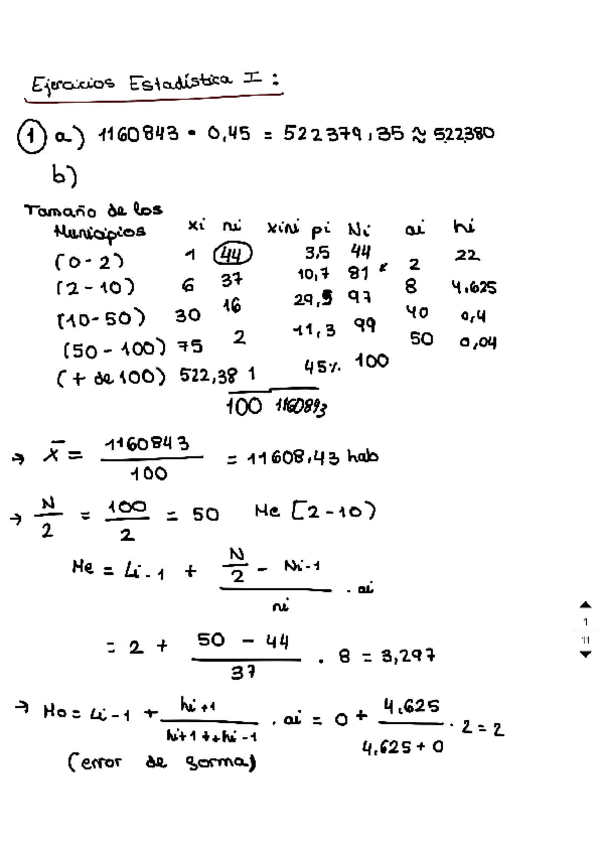 Ejercicios Estadística I :
1 a) 1160843 · 0,45 = 522379,35 ≈ 522380
b)
Tamaño de los Municipios xi ni xini pi Ni ai hi
(0-2) 1 44 3,5 44 2 22
[2-10) 6 37 10,7 81 8 4.625
[10-50) 30 16 29,5 97 40 0,4
(50-100) 75 2 11,3 99 50 0,04
(+ de 100) 522,38 1 45% 100
100 1160843
→ x̄ = 1160843 / 100 = 11608,43 hab
→ N/2 = 100/2 = 50 Me [2-10)
Me = Li-1 + (N/2 - Ni-1) / ni · ai
= 2 + (50 - 44) / 37 · 8 = 3,297
→ Mo = Li-1 + hi+1 / (hi+1 + hi-1) · ai = 0 + 4.625 / (4.625 + 0) · 2 = 2
(error de forma)
1
11